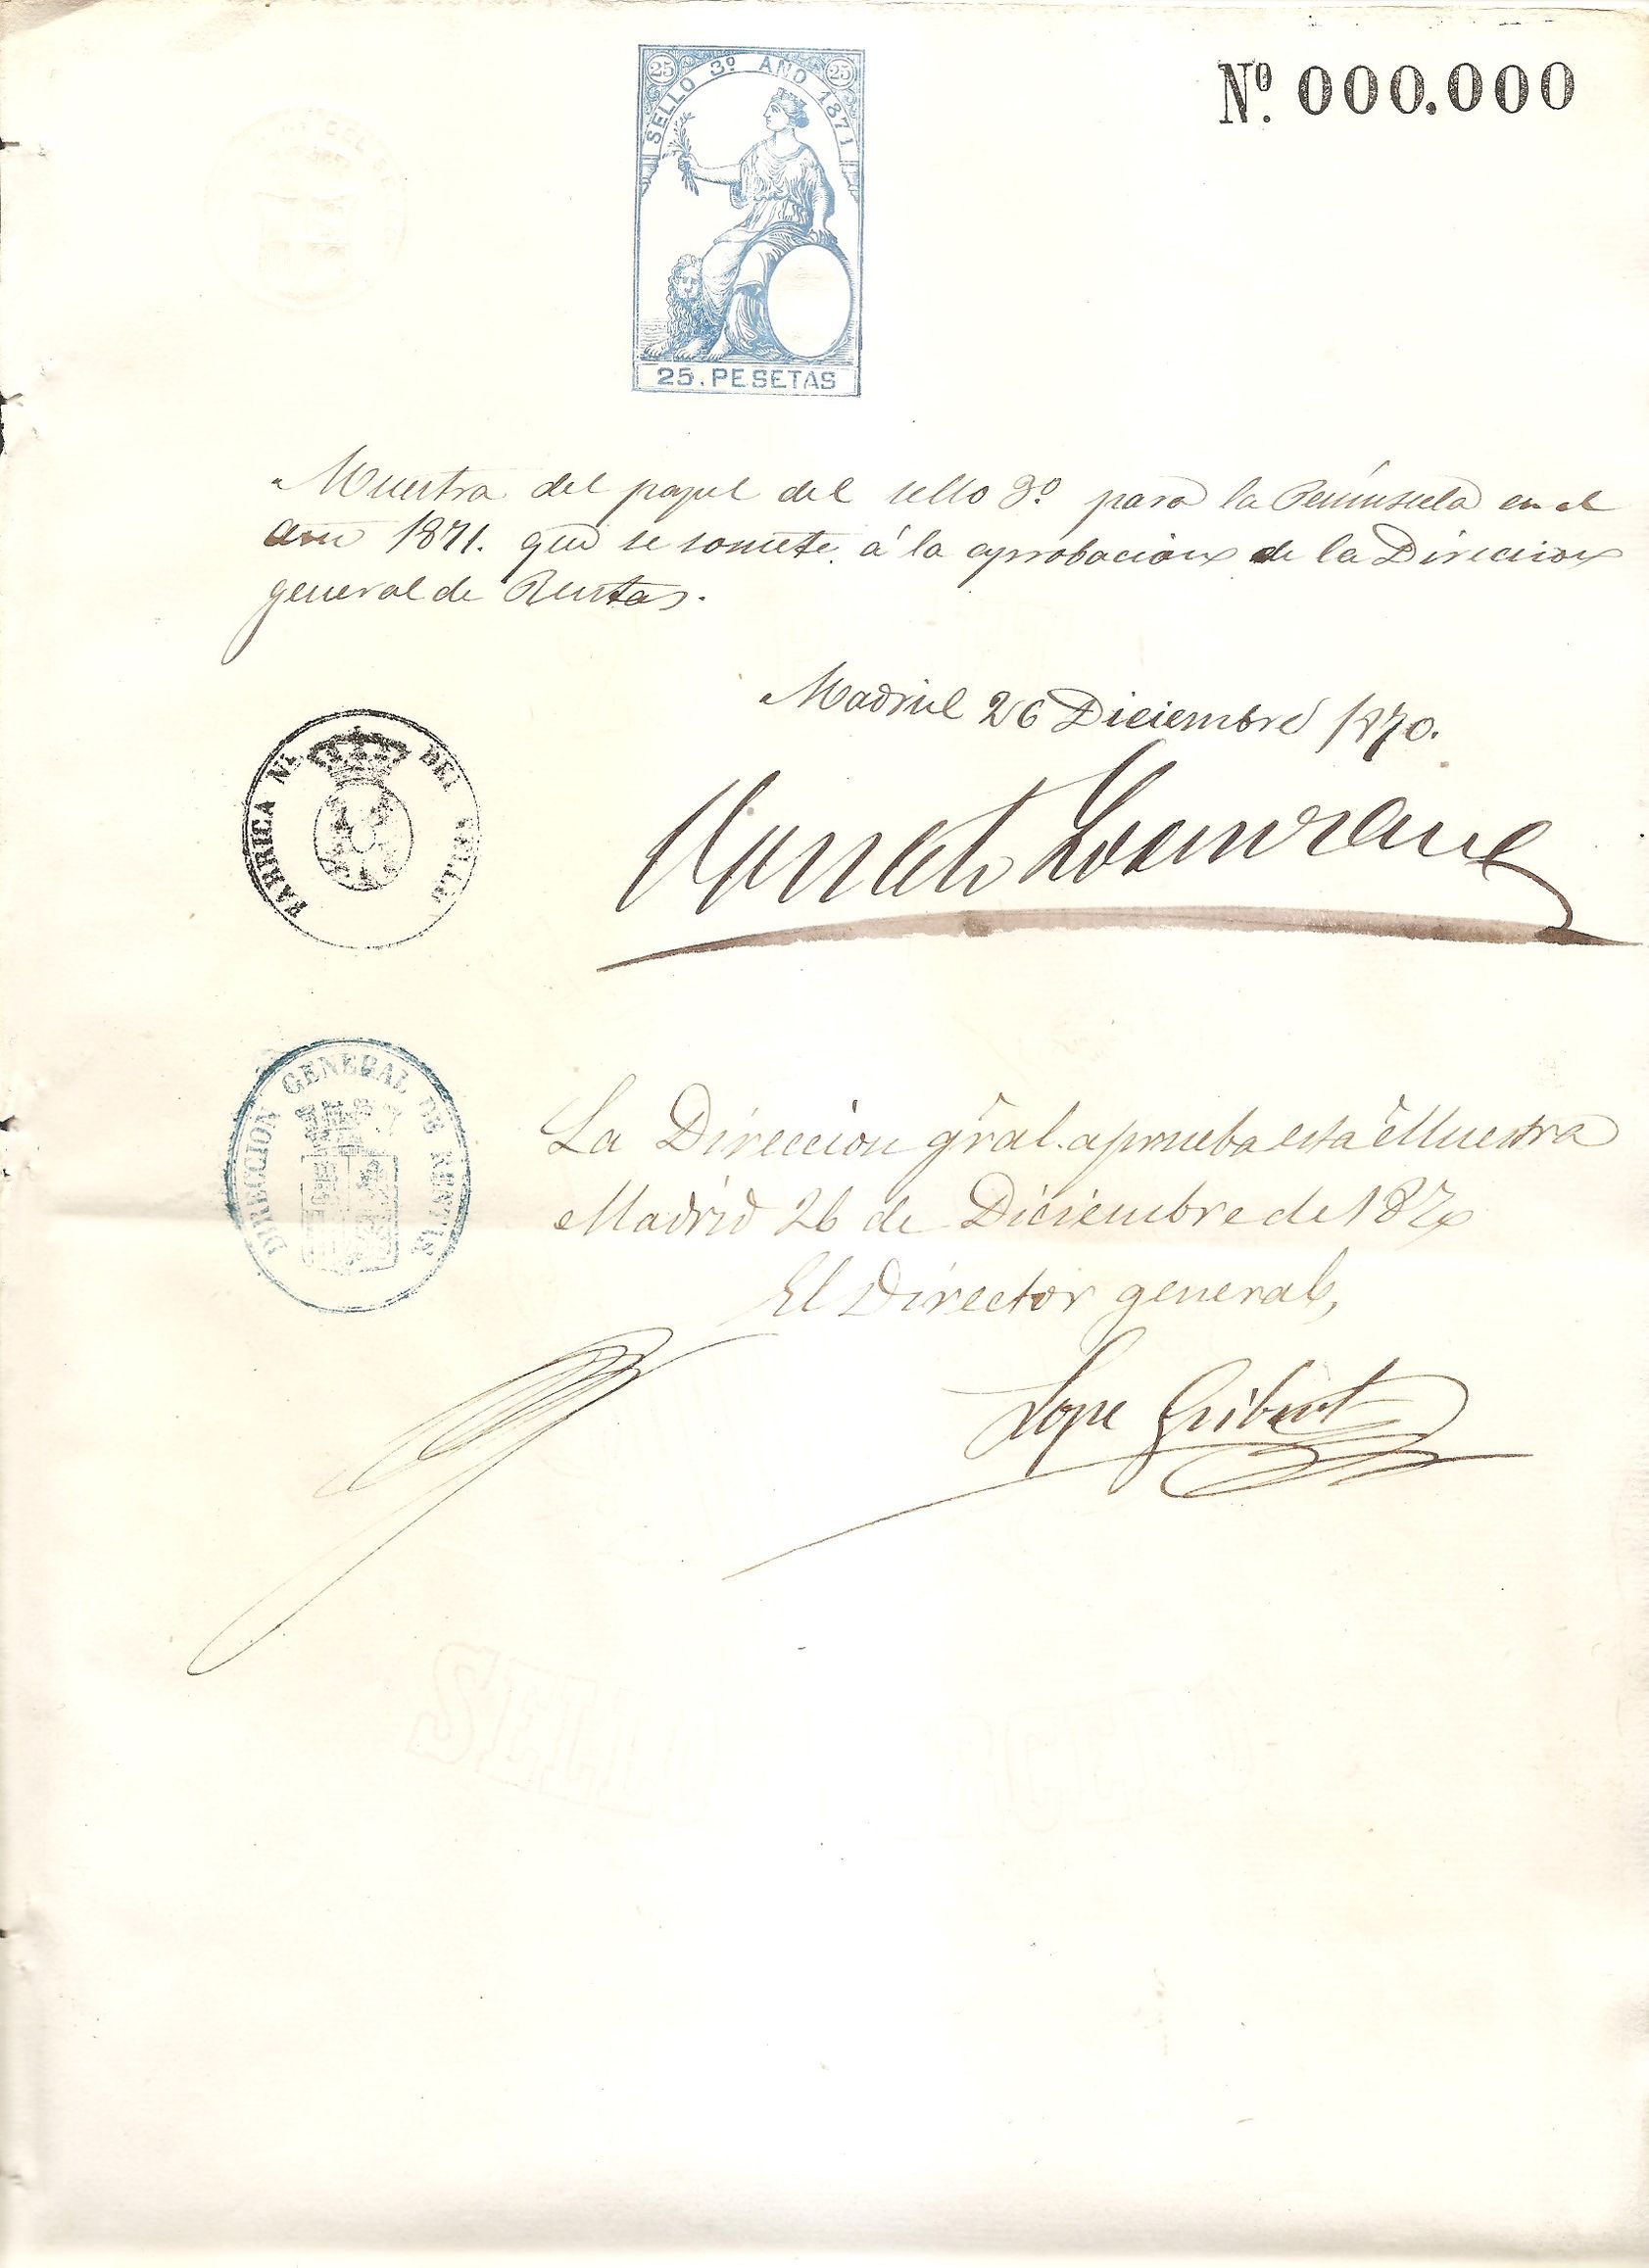 Nº 000.000
25 25
SELLO 3º AÑO 1871
25. PESETAS
Muestra del papel del sello 3º para la Península en el
año 1871. que se somete á la aprobacion de la Direccion
general de Rentas.
Madrid 26 Diciembre 1870.
FABRICA NL DEL SELLO
DIRECCION GENERAL DE RENTAS
La Direccion gral. aprueba esta Muestra
Madrid 26 de Diciembre de 1870
El Director general,
Lope Gisbert